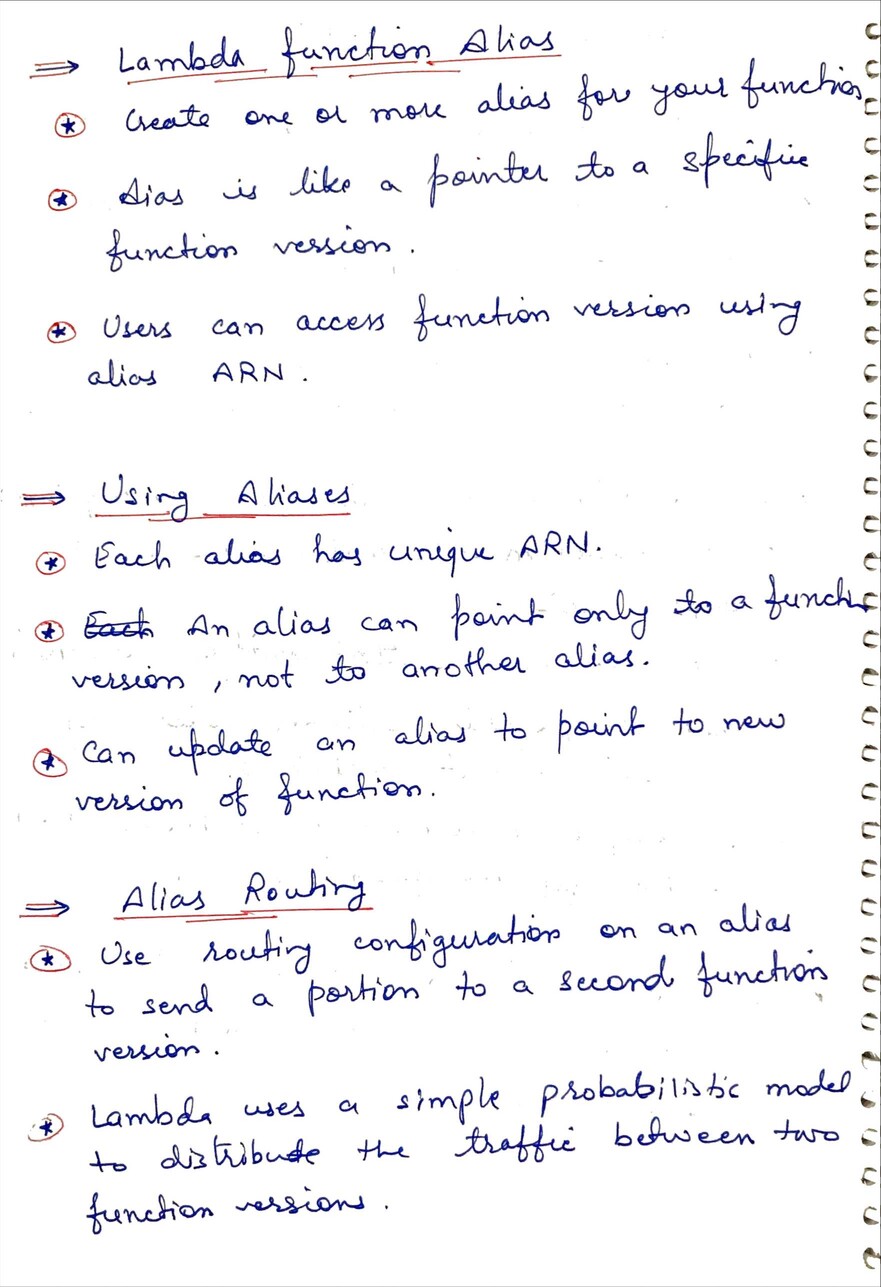 ⇒ Lambda function Alias
⊛ Create one or more alias for your function
⊛ Alias is like a pointer to a specific
function version.
⊛ Users can access function version using
alias ARN.
⇒ Using Aliases
⊛ Each alias has unique ARN.
⊛ Each An alias can point only to a function
version, not to another alias.
⊛ Can update an alias to point to new
version of function.
⇒ Alias Routing
⊛ Use routing configuration on an alias
to send a portion to a second function
version.
⊛ Lambda uses a simple probabilistic model
to distribute the traffic between two
function versions.